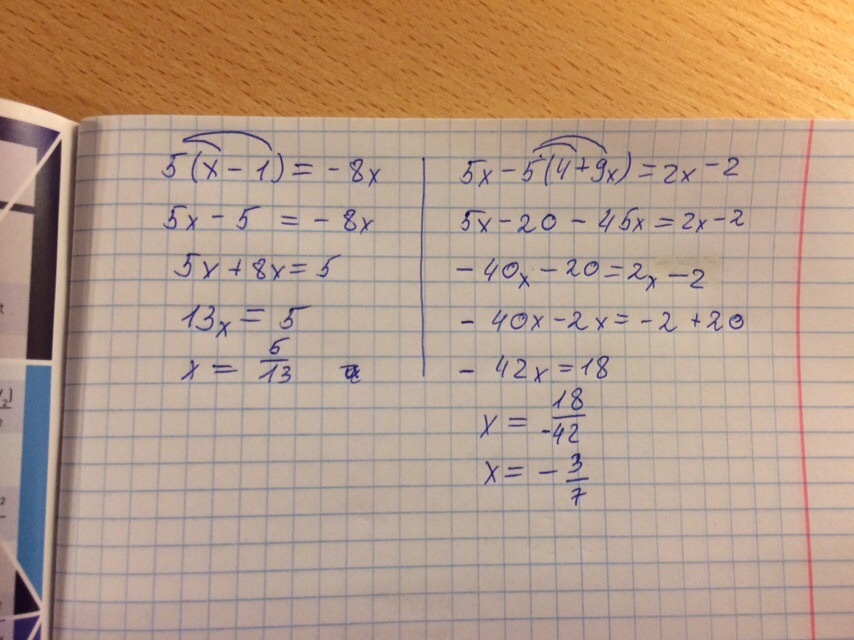 5(x-1)=-8x
5x-5=-8x
5x+8x=5
13x=5
x=5/13
5x-5(4+9x)=2x-2
5x-20-45x=2x-2
-40x-20=2x-2
-40x-2x=-2+20
-42x=18
x=18/-42
x=-3/7